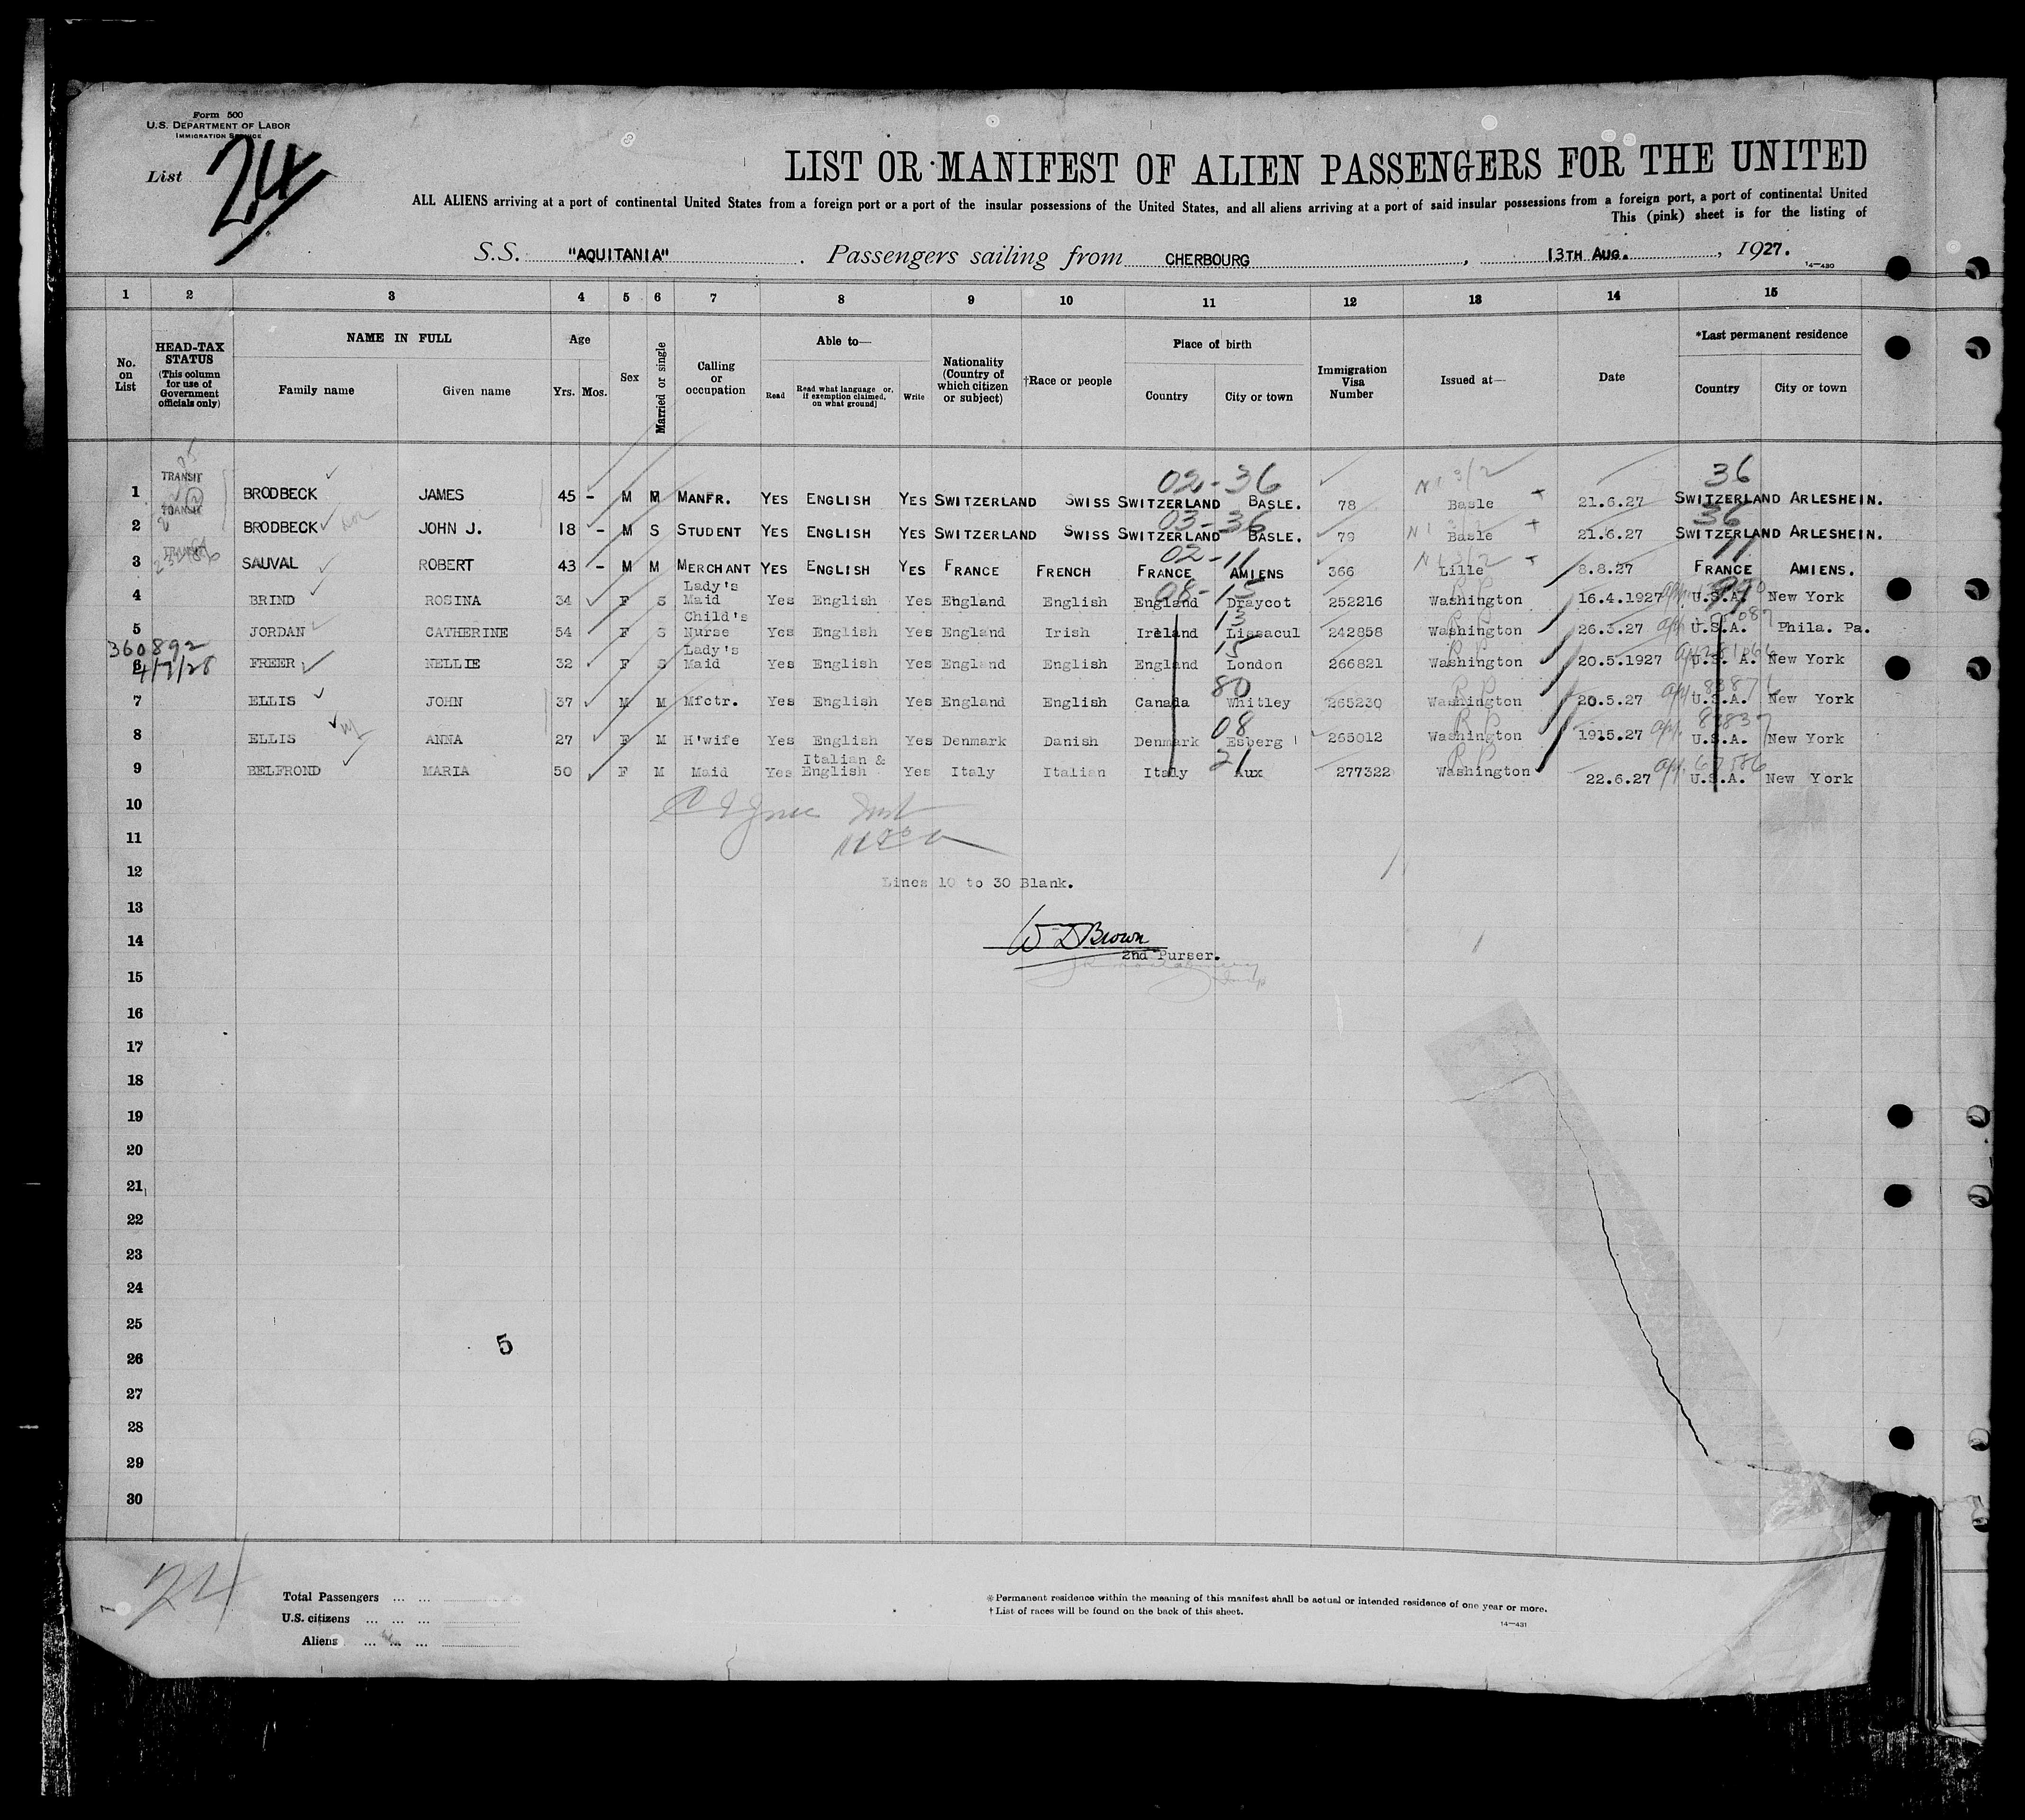 Form 500
U.S. DEPARTMENT OF LABOR
IMMIGRATION SERVICE
List 24
LIST OR MANIFEST OF ALIEN PASSENGERS FOR THE UNITED
ALL ALIENS arriving at a port of continental United States from a foreign port or a port of the insular possessions of the United States, and all aliens arriving at a port of said insular possessions from a foreign port, a port of continental United
This (pink) sheet is for the listing of
S.S. "AQUITANIA" . Passengers sailing from CHERBOURG , 13TH AUG. , 1927.
14—430
1 2 3 4 5 6 7 8 9 10 11 12 13 14 15
No. on List
HEAD-TAX STATUS (This column for use of Government officials only)
NAME IN FULL
Family name Given name
Age
Yrs. Mos.
Sex
Married or single
Calling or occupation
Able to—
Read Read what language or, if exemption claimed, on what ground] Write
Nationality (Country of which citizen or subject)
†Race or people
Place of birth
Country City or town
Immigration Visa Number
Issued at—
Date
*Last permanent residence
Country City or town
TRANSIT 02-36 36
1 BRODBECK JAMES 45 - M M MANFR. YES ENGLISH YES SWITZERLAND SWISS SWITZERLAND BASLE. 78 Basle 21.6.27 SWITZERLAND ARLESHEIN.
TRANSIT 03-36 36
2 BRODBECK JOHN J. 18 - M S STUDENT YES ENGLISH YES SWITZERLAND SWISS SWITZERLAND BASLE. 79 Basle 21.6.27 SWITZERLAND ARLESHEIN.
02-11 11
3 SAUVAL ROBERT 43 - M M MERCHANT YES ENGLISH YES FRANCE FRENCH FRANCE AMIENS 366 Lille 8.8.27 FRANCE AMIENS.
08-15
4 BRIND ROSINA 34 F S Lady's Maid Yes English Yes England English England Draycot 252216 Washington 16.4.1927 U.S.A. New York
13
5 JORDAN CATHERINE 54 F S Child's Nurse Yes English Yes England Irish Ireland Lissacul 242858 Washington 26.3.27 U.S.A. Phila. Pa.
360892
15
6 4/7/28 FREER NELLIE 32 F S Lady's Maid Yes English Yes England English England London 266821 Washington 20.5.1927 U.S. A. New York
80
7 ELLIS JOHN 37 M M Mfctr. Yes English Yes England English Canada Whitley 265230 Washington 20.5.27 U.S.A. New York
08
8 ELLIS ANNA 27 F M H'wife Yes English Yes Denmark Danish Denmark Esberg 265012 Washington 1915.27 U.S.A. New York
21
9 BELFROND MARIA 50 F M Maid Yes Italian & English Yes Italy Italian Italy Aux 277322 Washington 22.6.27 U.S.A. New York
10
11
12 Lines 10 to 30 Blank.
13
14 W D Brown
2nd Purser.
15
16
17
18
19
20
21
22
23
24
25
5
26
27
28
29
30
24
Total Passengers ... ...
U.S. citizens ... ... ...
Aliens ... ... ...
* Permanent residence within the meaning of this manifest shall be actual or intended residence of one year or more.
† List of races will be found on the back of this sheet.
14—431